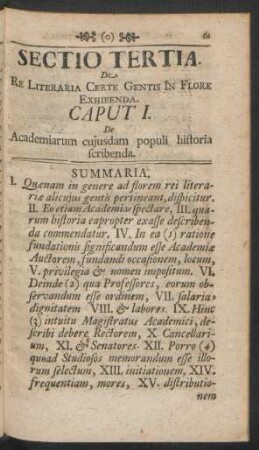 (o) 61
SECTIO TERTIA.
De
RE LITERARIA CERTE GENTIS IN FLORE
EXHIBENDA.
CAPUT I.
De
Academiarum cujusdam populi historia
scribenda.
SUMMARIA,
I. Quænam in genere ad florem rei litera-
riæ alicujus gentis pertineant, dispicitur.
II. Eo etiam Academias spectare, III. qua-
rum historia eapropter exacte describen-
da commendatur. IV. In ea (1) ratione
fundationis significandum esse Academiæ
Auctorem, fundandi occasionem, locum,
V. privilegia & nomen impositum. VI.
Deinde (2) qua Professores, eorum ob-
servandum esse ordinem, VII. salaria,
dignitatem VIII. & labores. IX. Hinc
(3) intuitu Magistratus Academici, de-
scribi debere Rectorem, X. Cancellari-
um, XI. & Senatores. XII. Porro (4)
quoad Studiosos memorandum esse illo-
rum selectum, XIII. initiationem, XIV.
frequentiam, mores, XV. distributio-
nem